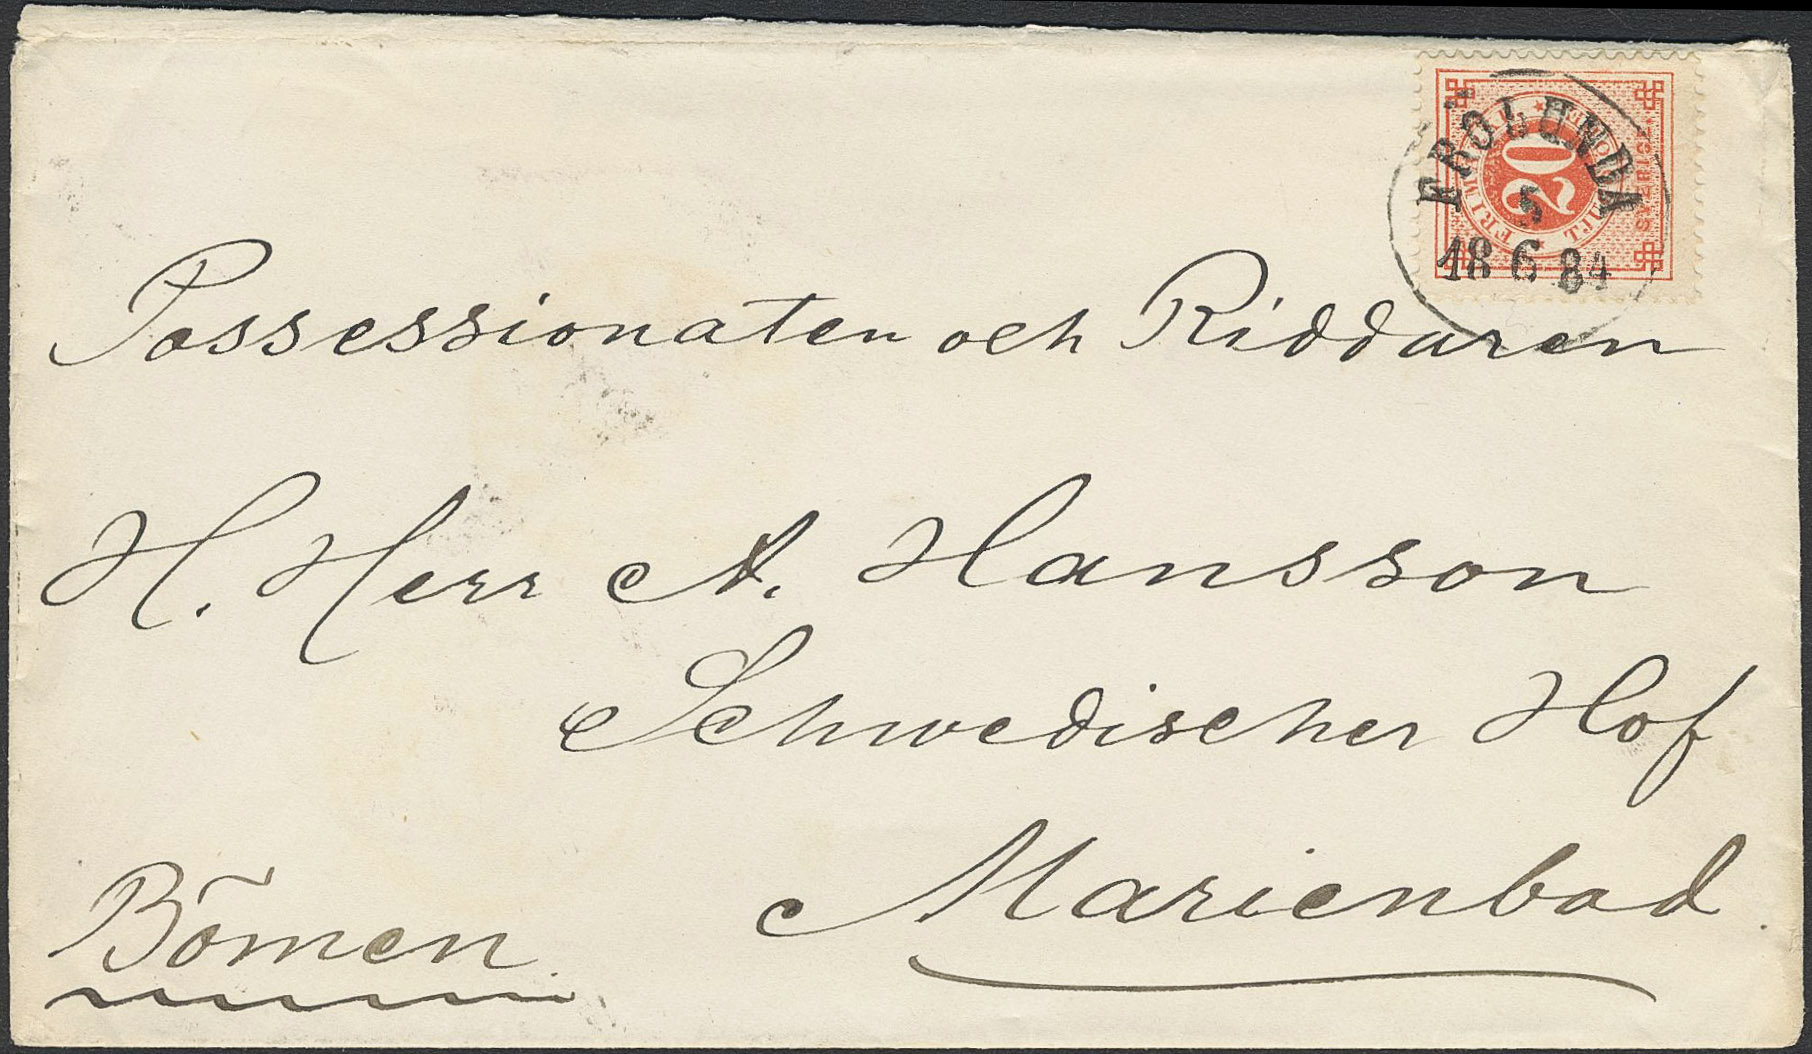 FRÖLUNDA
5
18 6 84
20
FRIMÄRKE
Possessionaten och Riddaren
H. Herr A. Hansson
Schwedischer Hof
Marienbad.
Bömen.